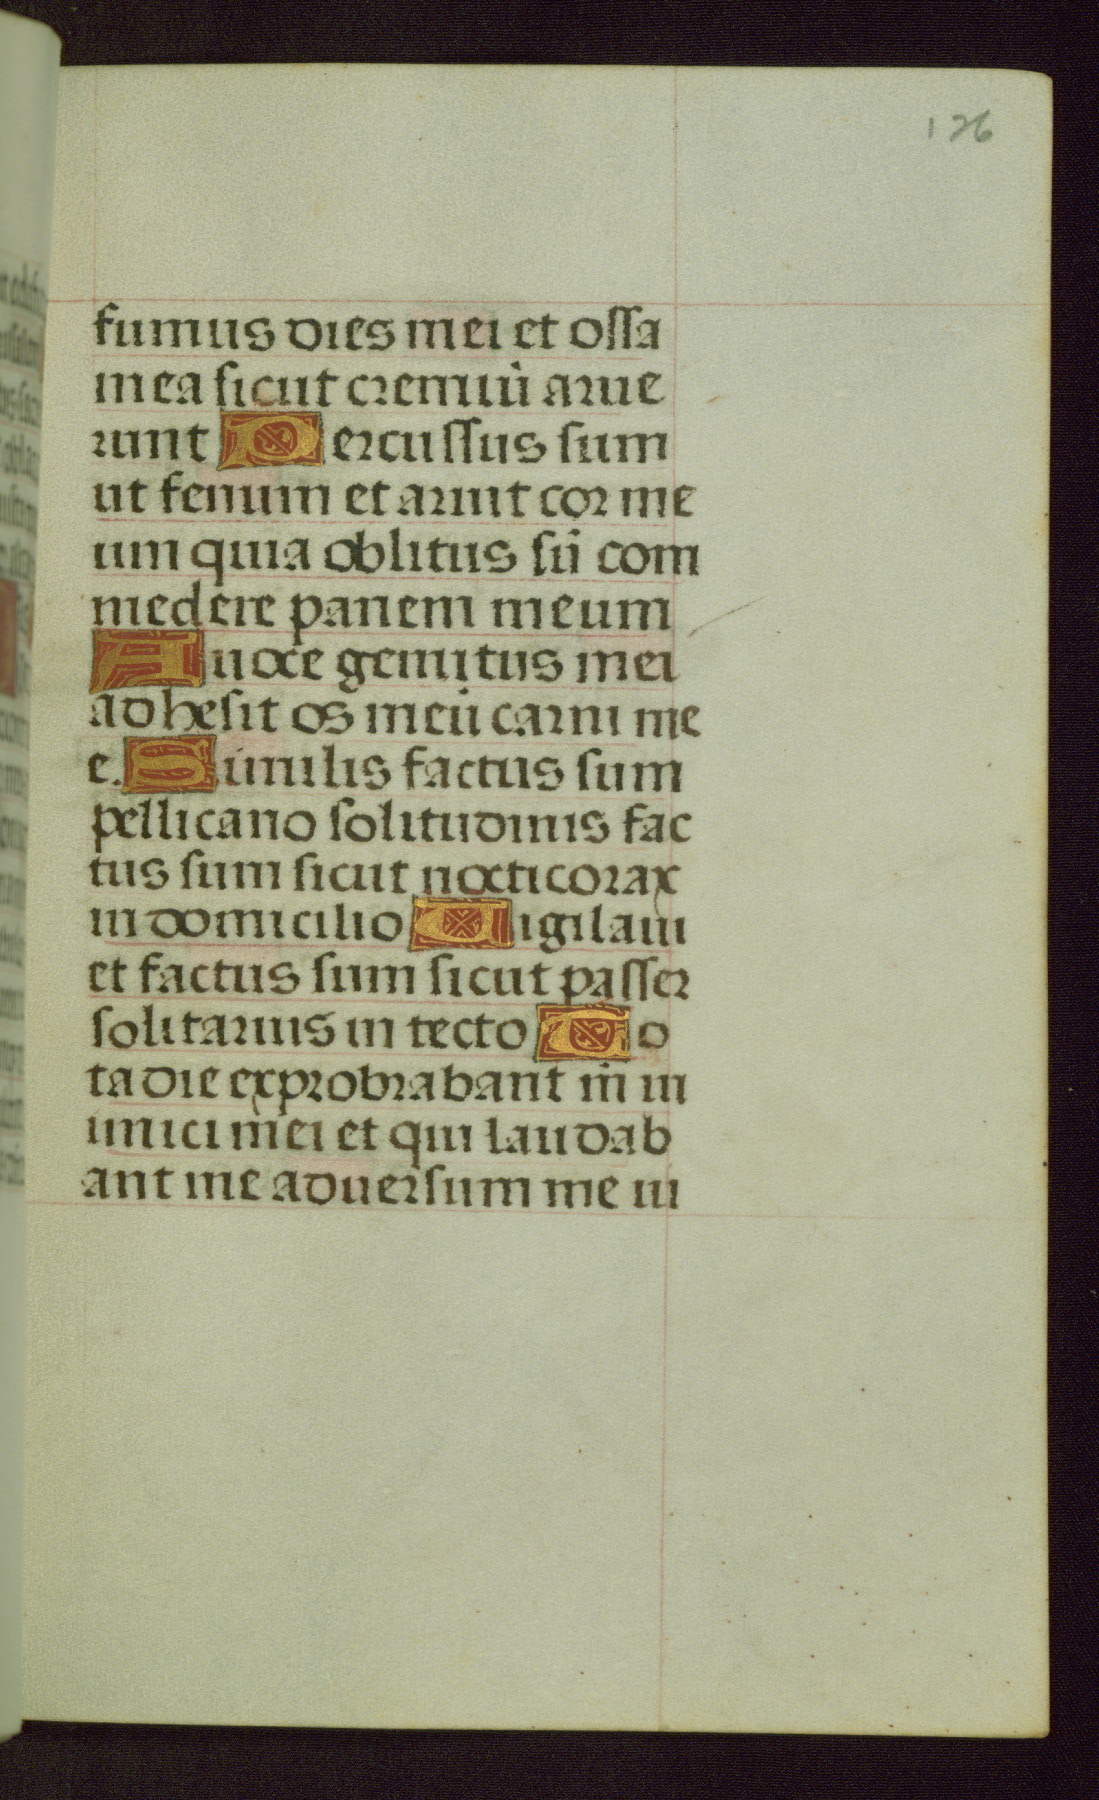 126
fumus dies mei et ossa
mea sicut cremiuū arue
runt Percussus sum
ut fenum et aruit cor me
um quia oblitus sū com
medere panem meum
A uoce gemitus mei
adhesit os meū carni me
e. Similis factus sum
pellicano solitudinis fac
tus sum sicut nocticorax
in domicilio Uigilaui
et factus sum sicut passer
solitarius in tecto To
ta die exprobrabant m̄ in
imici mei et qui laudab
ant me aduersum me iu